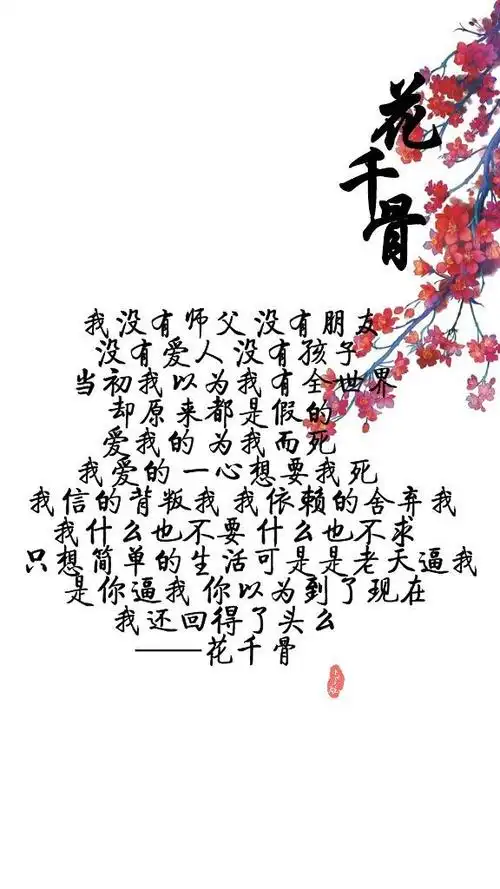 花千骨
我没有师父 没有朋友
没有爱人 没有孩子
当初我以为我有全世界
却原来都是假的
爱我的 为我而死
我爱的 一心想要我死
我信的背叛我 我依赖的舍弃我
我什么也不要 什么也不求
只想简单的生活可是是老天逼我
是你逼我 你以为到了现在
我还回得了头么
——花千骨